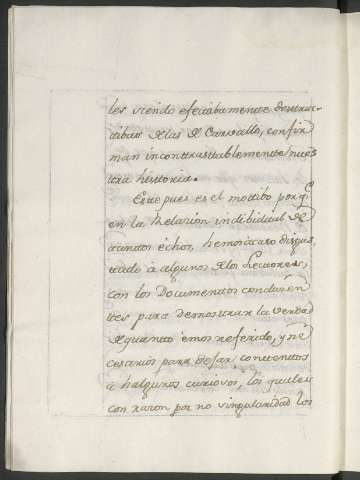 les siendo efecibamente destruc-
tibas de las de Carvallo, confir
man incontrastablemente nues
tra historia.
Este pues es el motibo por q.e
en la Relacion indibidual de
tantos echos, hemos acaso disgus
tado á algunos de los Lectores,
con los Documentos conducen
tes para demostrar la verdad
de quanto emos referido, y ne
cesarios para dejar contentos
a halgunos curiosos, los quales
con razon por no singularidad los